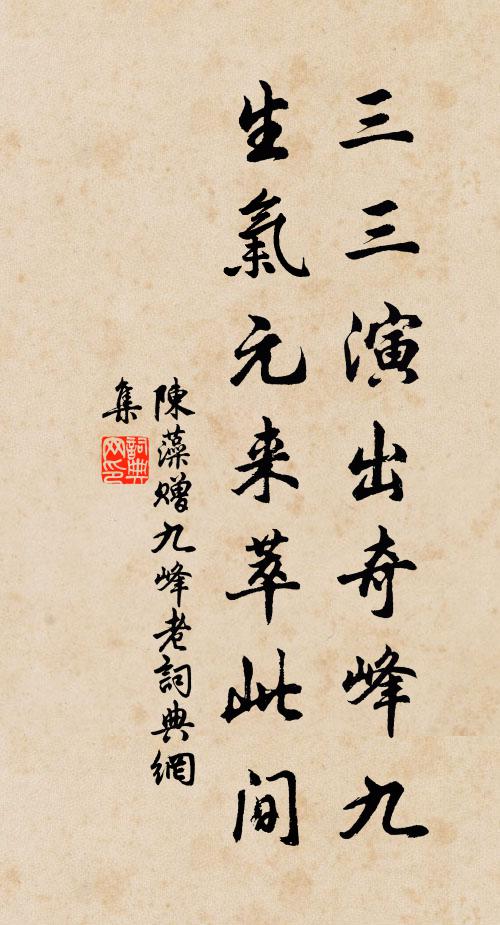 三三演出奇峰九
生氣元来萃此间
陳藻赠九峰老詞典網
集
詞典
网印